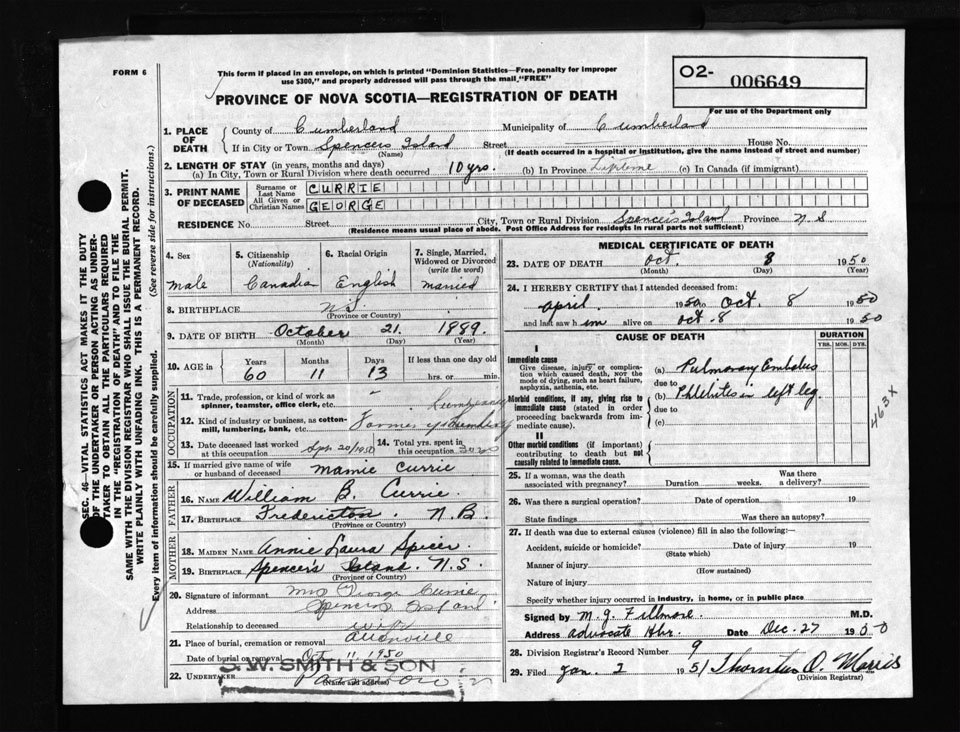 FORM 6
This form if placed in an envelope, on which is printed "Dominion Statistics—Free, penalty for improper
use $300," and properly addressed will pass through the mail, "FREE"
PROVINCE OF NOVA SCOTIA—REGISTRATION OF DEATH
O2- 006649
For use of the Department only
1. PLACE OF DEATH
County of Cumberland Municipality of Cumberland
If in City or Town Spencers Island Street House No.
(Name) (If death occurred in a hospital or institution, give the name instead of street and number)
2. LENGTH OF STAY (in years, months and days)
(a) In City, Town or Rural Division where death occurred 10 yrs. (b) In Province Liptome (c) In Canada (if immigrant)
3. PRINT NAME OF DECEASED
Surname or Last Name CURRIE
All Given or Christian Names GEORGE
RESIDENCE No. Street City, Town or Rural Division Spencer's Island Province N S
(Residence means usual place of abode. Post Office Address for residents in rural parts not sufficient)
4. Sex 5. Citizenship (Nationality) 6. Racial Origin 7. Single, Married, Widowed or Divorced (write the word)
male Canadian English married
8. BIRTHPLACE N S
(Province or Country)
9. DATE OF BIRTH October 21. 1889.
(Month) (Day) (Year)
10. AGE in Years Months Days If less than one day old
60 11 13 hrs. or min.
OCCUPATION
11. Trade, profession, or kind of work as spinner, teamster, office clerk, etc.
12. Kind of industry or business, as cotton-mill, lumbering, bank, etc. Farmer
13. Date deceased last worked at this occupation Sep 20/1950 14. Total yrs. spent in this occupation
15. If married give name of wife or husband of deceased Mamie Currie
FATHER
16. NAME William B. Currie.
17. BIRTHPLACE Fredericton. N.B.
(Province or Country)
MOTHER
18. MAIDEN NAME Annie Laura Spicer
19. BIRTHPLACE Spencer's Island. N.S.
(Province or Country)
20. Signature of informant Mrs George Currie
Address Spencers Island
Relationship to deceased wife
21. Place of burial, cremation or removal
Date of burial or removal Oct 11 1950
S.W. SMITH & SON
22. UNDERTAKER
(Name and address)
MEDICAL CERTIFICATE OF DEATH
23. DATE OF DEATH Oct. 8 1950
(Month) (Day) (Year)
24. I HEREBY CERTIFY that I attended deceased from:
April 1950 to Oct. 8 1950
and last saw h im alive on Oct. 8 1950
CAUSE OF DEATH DURATION
YRS. MOS. DYS.
I
Immediate cause
Give disease, injury or complication which caused death, not the mode of dying, such as heart failure, asphyxia, asthenia, etc.
(a) Pulmonary Embolus
due to
Morbid conditions, if any, giving rise to immediate cause (stated in order proceeding backwards from immediate cause).
(b) Phlebitis in left leg.
due to
(c)
463X
II
Other morbid conditions (if important) contributing to death but not causally related to immediate cause.
25. If a woman, was the death associated with pregnancy? Duration weeks. Was there a delivery?
26. Was there a surgical operation? Date of operation 19
State findings Was there an autopsy?
27. If death was due to external causes (violence) fill in also the following:—
Accident, suicide or homicide? Date of injury 19
(State which)
Manner of injury
(How sustained)
Nature of injury
Specify whether injury occurred in industry, in home, or in public place
Signed by M. G. Fillmore. M.D.
Address Advocate Hbr. Date Dec. 27 1950
28. Division Registrar's Record Number 9
29. Filed Jan. 2 1951 Thornton O. Morris
(Division Registrar)
SEC. 46—VITAL STATISTICS ACT MAKES IT THE DUTY
OF THE UNDERTAKER OR PERSON ACTING AS UNDER-
TAKER TO OBTAIN ALL THE PARTICULARS REQUIRED
IN THE "REGISTRATION OF DEATH" AND TO FILE THE
SAME WITH THE DIVISION REGISTRAR WHO SHALL ISSUE THE BURIAL PERMIT.
WRITE PLAINLY WITH UNFADING INK. THIS IS A PERMANENT RECORD.
Every item of information should be carefully supplied. (See reverse side for instructions.)